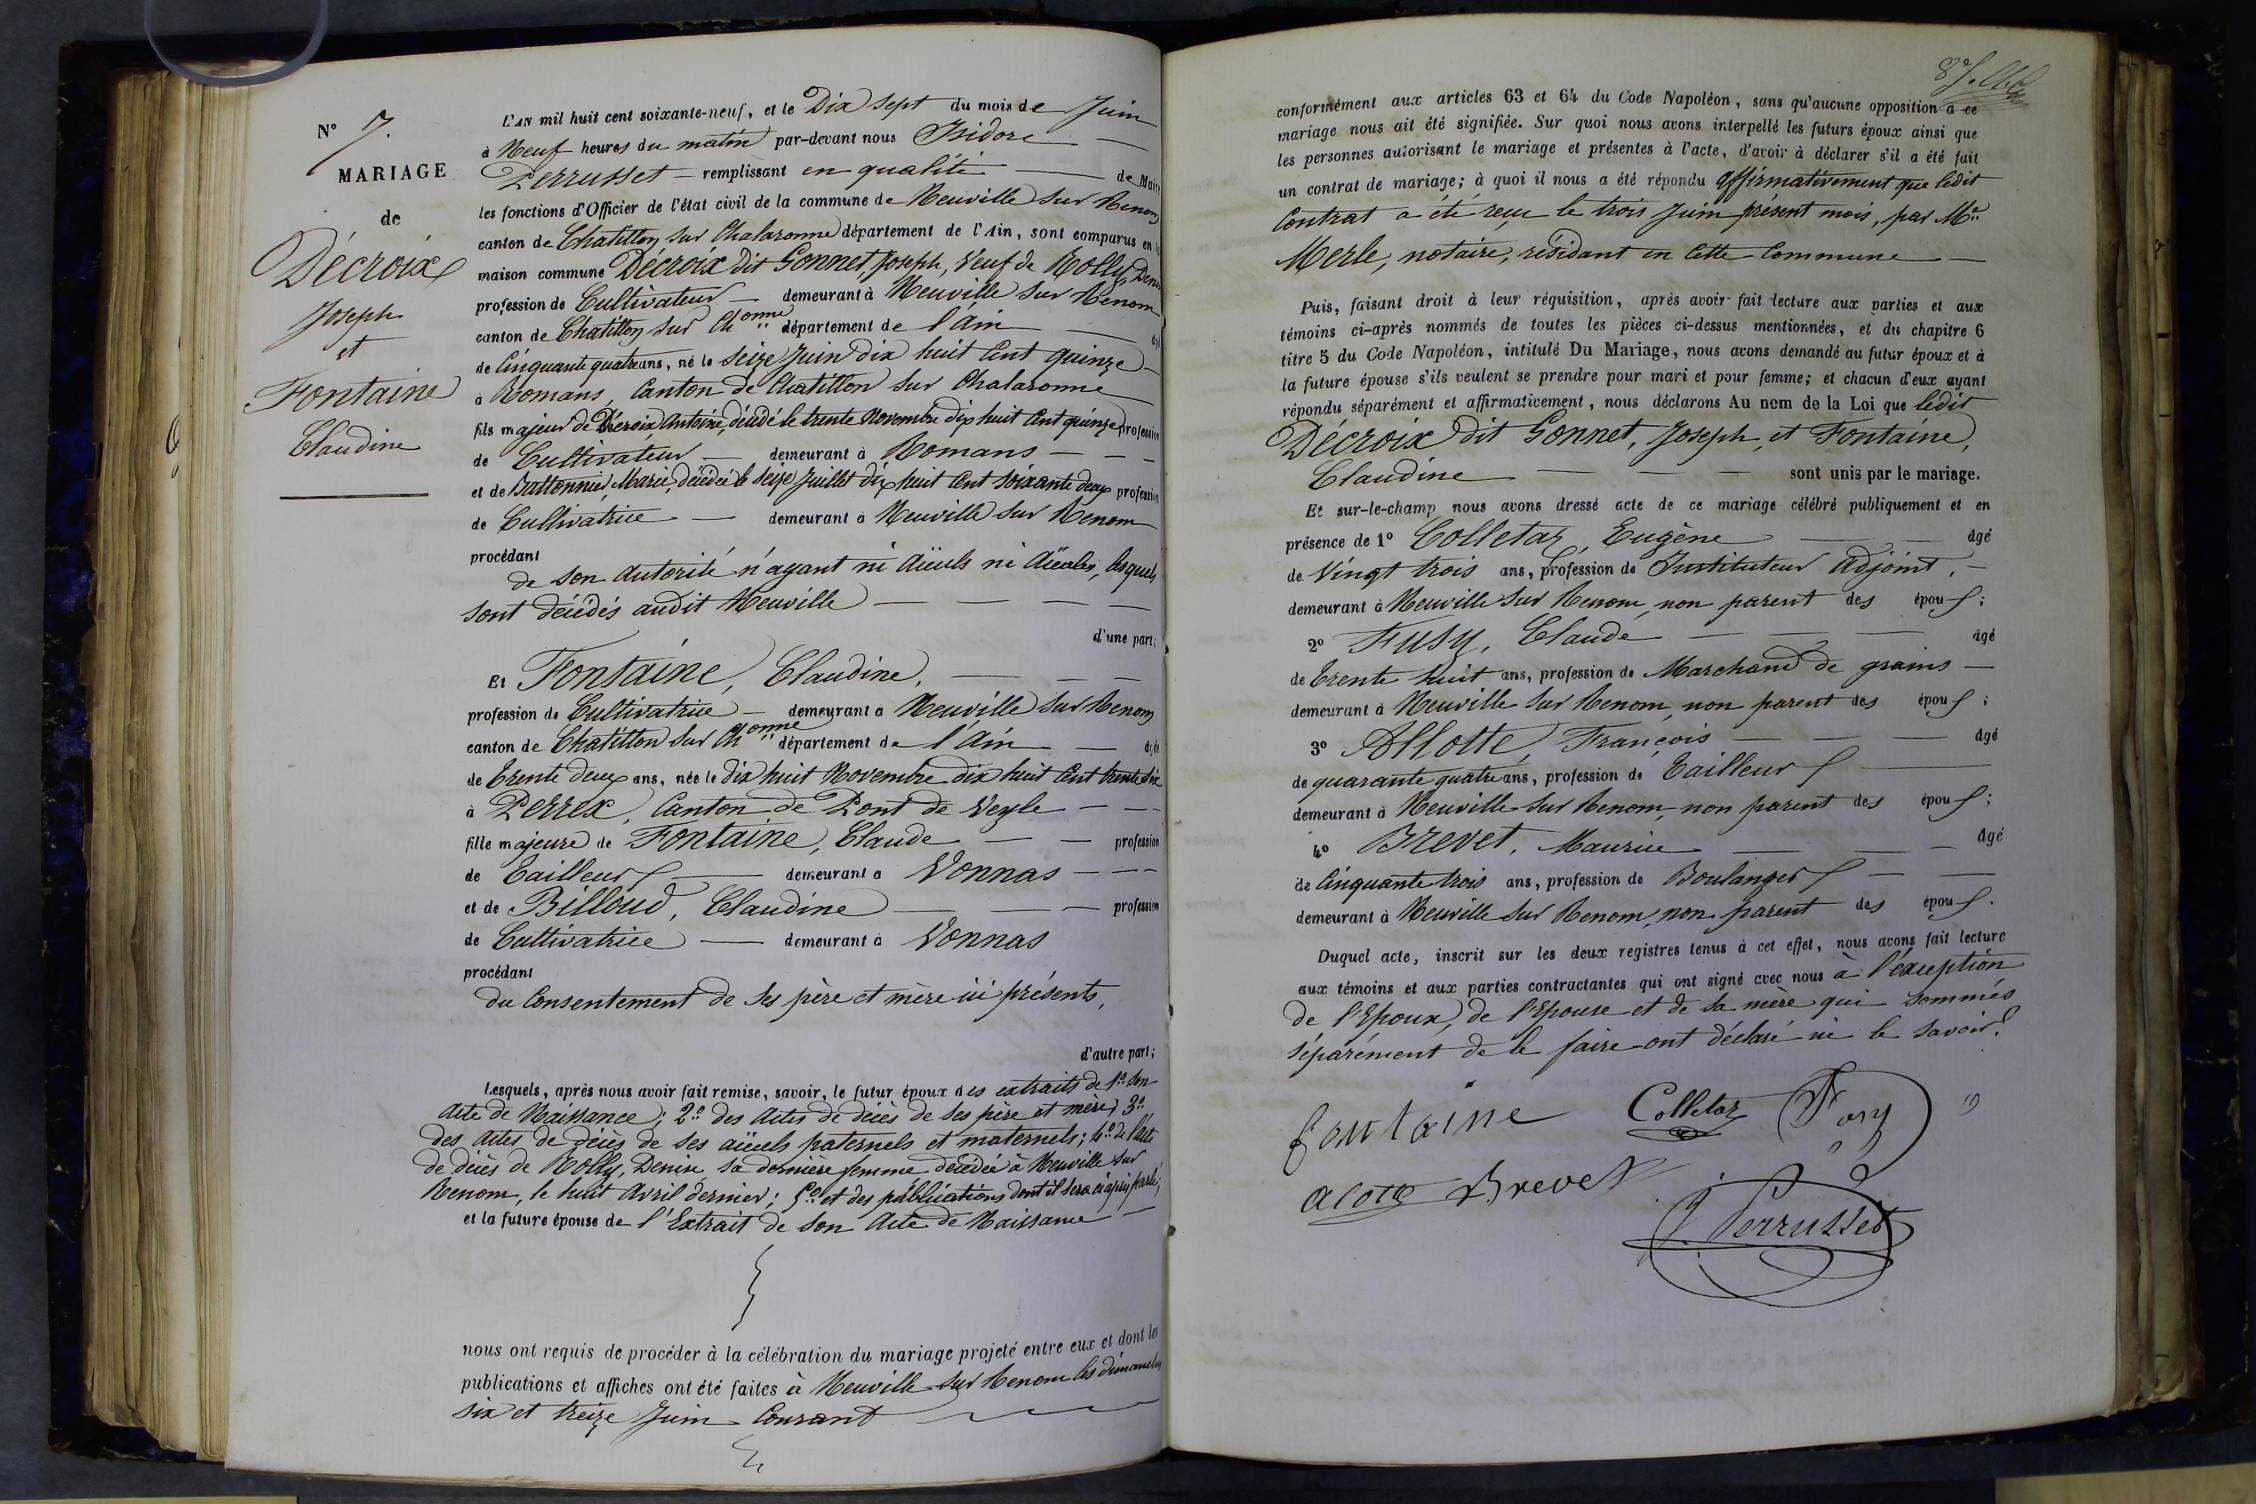 N° 7.
MARIAGE
de
Décroix
Joseph
et
Fontaine
Claudine
L'AN mil huit cent soixante-neuf, et le Dix sept du mois de Juin
à Neuf heures du matin par-devant nous Isidore
Perrusset remplissant en qualité de Maire
les fonctions d'Officier de l'état civil de la commune de Neuville sur Renom
canton de Chatillon sur Chalaronne département de l'Ain, sont comparus en la
maison commune Décroix dit Gonnet, Joseph, Veuf de Rolly, Denise
profession de Cultivateur demeurant à Neuville sur Renom
canton de Chatillon sur Chonne département de l'Ain âgé
de Cinquante quatre ans, né le seize Juin dix huit Cent quinze
à Romans, Canton de Chatillon sur Chalaronne
fils majeur de Décroix Antoine, décédé le trente Novembre dix huit Cent quinze profession
de Cultivateur demeurant à Romans
et de Battonnier, Marie, décédée le seize Juillet dix huit Cent soixante deux profession
de Cultivatrice demeurant à Neuville sur Renom
procédant
de son autorité n'ayant ni Aïeuls ni Aïeules, lesquels
sont décédés audit Neuville
d'une part;
Et Fontaine, Claudine,
profession de Cultivatrice demeurant à Neuville sur Renom
canton de Chatillon sur Chonne département de l'Ain âgée
de Trente deux ans, née le dix huit Novembre dix huit Cent trente six
à Perrex, Canton de Pont de Veyle
fille majeure de Fontaine, Claude profession
de Tailleur demeurant à Vonnas
et de Billoud, Claudine profession
de Cultivatrice demeurant à Vonnas
procédant
du Consentement de ses père et mère ici présents,
d'autre part;
Lesquels, après nous avoir fait remise, savoir, le futur époux des extraits de 1° son
acte de Naissance; 2° des actes de décès de ses père et mère; 3°
des actes de décès de ses aïeuls paternels et maternels; 4° de l'acte
de décès de Rolly, Denise sa dernière femme décédée à Neuville sur
Renom, le huit Avril dernier; 5° et des publications dont il sera ci après parlé;
et la future épouse de l'Extrait de son Acte de Naissance
nous ont requis de procéder à la célébration du mariage projeté entre eux et dont les
publications et affiches ont été faites à Neuville sur Renom les dimanches
six et treize Juin Courant
87.
conformément aux articles 63 et 64 du Code Napoléon, sans qu'aucune opposition à ce
mariage nous ait été signifiée. Sur quoi nous avons interpellé les futurs époux ainsi que
les personnes autorisant le mariage et présentes à l'acte, d'avoir à déclarer s'il a été fait
un contrat de mariage; à quoi il nous a été répondu affirmativement que ledit
Contrat a été reçu le trois Juin présent mois, par Me
Merle, notaire, résidant en cette Commune
Puis, faisant droit à leur réquisition, après avoir fait lecture aux parties et aux
témoins ci-après nommés de toutes les pièces ci-dessus mentionnées, et du chapitre 6
titre 5 du Code Napoléon, intitulé Du Mariage, nous avons demandé au futur époux et à
la future épouse s'ils veulent se prendre pour mari et pour femme; et chacun d'eux ayant
répondu séparément et affirmativement, nous déclarons Au nom de la Loi que ledit
Décroix dit Gonnet, Joseph, et Fontaine,
Claudine sont unis par le mariage.
Et sur-le-champ nous avons dressé acte de ce mariage célébré publiquement et en
présence de 1° Colletaz, Eugène âgé
de Vingt trois ans, profession de Instituteur Adjoint,
demeurant à Neuville sur Renom, non parent des époux;
2° Fusy, Claude âgé
de Trente huit ans, profession de Marchand de grains
demeurant à Neuville sur Renom, non parent des époux;
3° Allotte, François âgé
de quarante quatre ans, profession de Tailleur
demeurant à Neuville sur Renom, non parent des époux;
4° Brevet, Maurice âgé
de Cinquante trois ans, profession de Boulanger
demeurant à Neuville sur Renom, non parent des époux.
Duquel acte, inscrit sur les deux registres tenus à cet effet, nous avons fait lecture
aux témoins et aux parties contractantes qui ont signé avec nous à l'exception
de l'Epoux, de l'Epouse et de sa mère qui sommés
séparément de le faire ont déclaré ne le savoir.
fontaine Colletaz Fusy
alotte Brevet
J. Perrusset